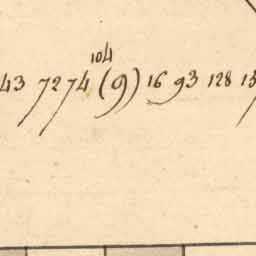 104
43 72 74 (9) 16 93 128